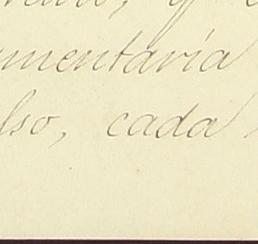 umentaria
lso, cada